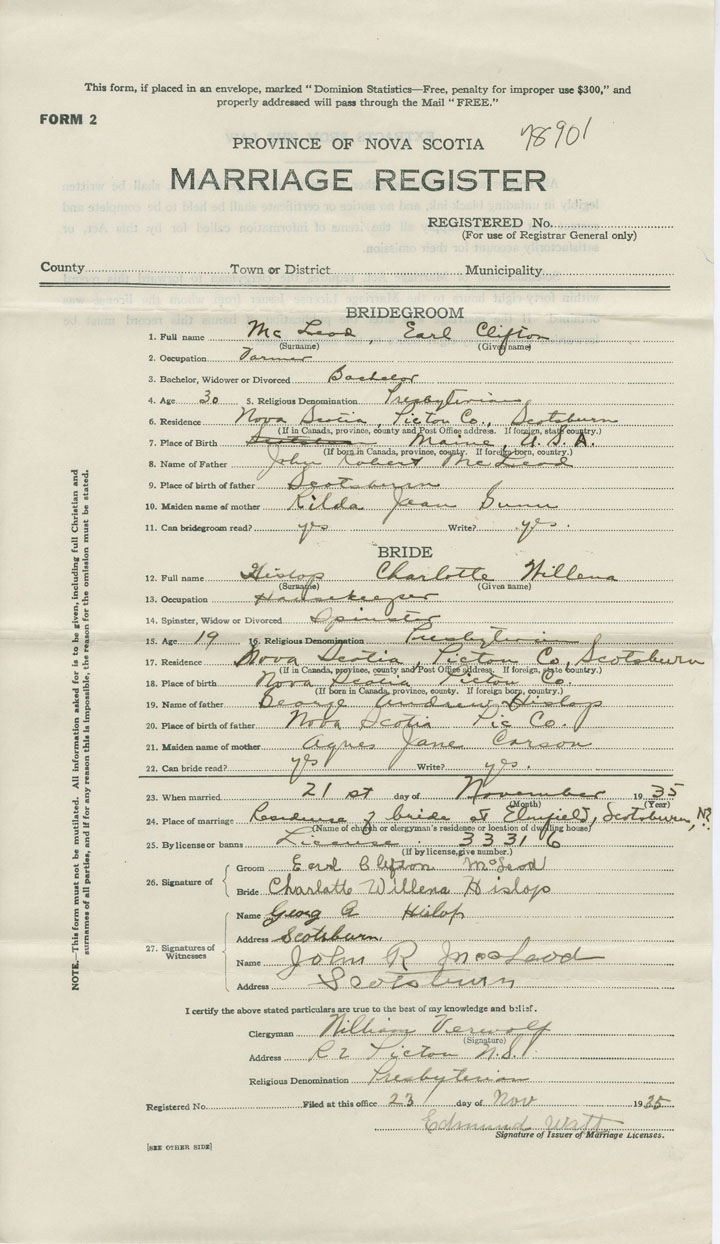 This form, if placed in an envelope, marked "Dominion Statistics—Free, penalty for improper use $300," and
properly addressed will pass through the Mail "FREE."
FORM 2
78901
PROVINCE OF NOVA SCOTIA
MARRIAGE REGISTER
REGISTERED No.
(For use of Registrar General only)
County Town or District Municipality
BRIDEGROOM
1. Full name McLeod, Earl Clifton
(Surname) (Given name)
2. Occupation Farmer
3. Bachelor, Widower or Divorced Bachelor
4. Age 30 5. Religious Denomination Presbyterian
6. Residence Nova Scotia, Pictou Co., Scotsburn
(If in Canada, province, county and Post Office address. If foreign, state country.)
7. Place of Birth Maine, U.S.A.
(If born in Canada, province, county. If foreign born, country.)
8. Name of Father John Robert McLeod
9. Place of birth of father Scotsburn
10. Maiden name of mother Kilda Jean Gunn
11. Can bridegroom read? yes Write? yes.
BRIDE
12. Full name Hislop Charlotte Willena
(Surname) (Given name)
13. Occupation Housekeeper
14. Spinster, Widow or Divorced Spinster
15. Age 19 16. Religious Denomination Presbyterian
17. Residence Nova Scotia Pictou Co, Scotsburn
(If in Canada, province, county and Post Office address. If foreign, state country.)
18. Place of birth Nova Scotia Pictou Co.
(If born in Canada, province, county. If foreign born, country.)
19. Name of father George Andrew Hislop
20. Place of birth of father Nova Scotia Pic Co.
21. Maiden name of mother Agnes Jane Carson
22. Can bride read? yes Write? yes.
23. When married 21 st day of November 1935
(Month) (Year)
24. Place of marriage Residence of bride at Elmfield, Scotsburn, NS
(Name of church or clergyman's residence or location of dwelling house)
25. By license or banns License 33316
(If by license, give number.)
26. Signature of
Groom Earl Clifton McLeod
Bride Charlotte Willena Hislop
27. Signatures of Witnesses
Name Georg A Hislop
Address Scotsburn
Name John R McLeod
Address Scotsburn
I certify the above stated particulars are true to the best of my knowledge and belief.
Clergyman William Verwolf
(Signature)
Address R2 Pictou N.S.
Religious Denomination Presbyterian
Registered No. Filed at this office 23 day of Nov 1935
Edmund Watt
Signature of Issuer of Marriage Licenses.
[SEE OTHER SIDE]
NOTE.—This form must not be mutilated. All information asked for is to be given, including full Christian and
surnames of all parties, and if for any reason this is impossible, the reason for the omission must be stated.